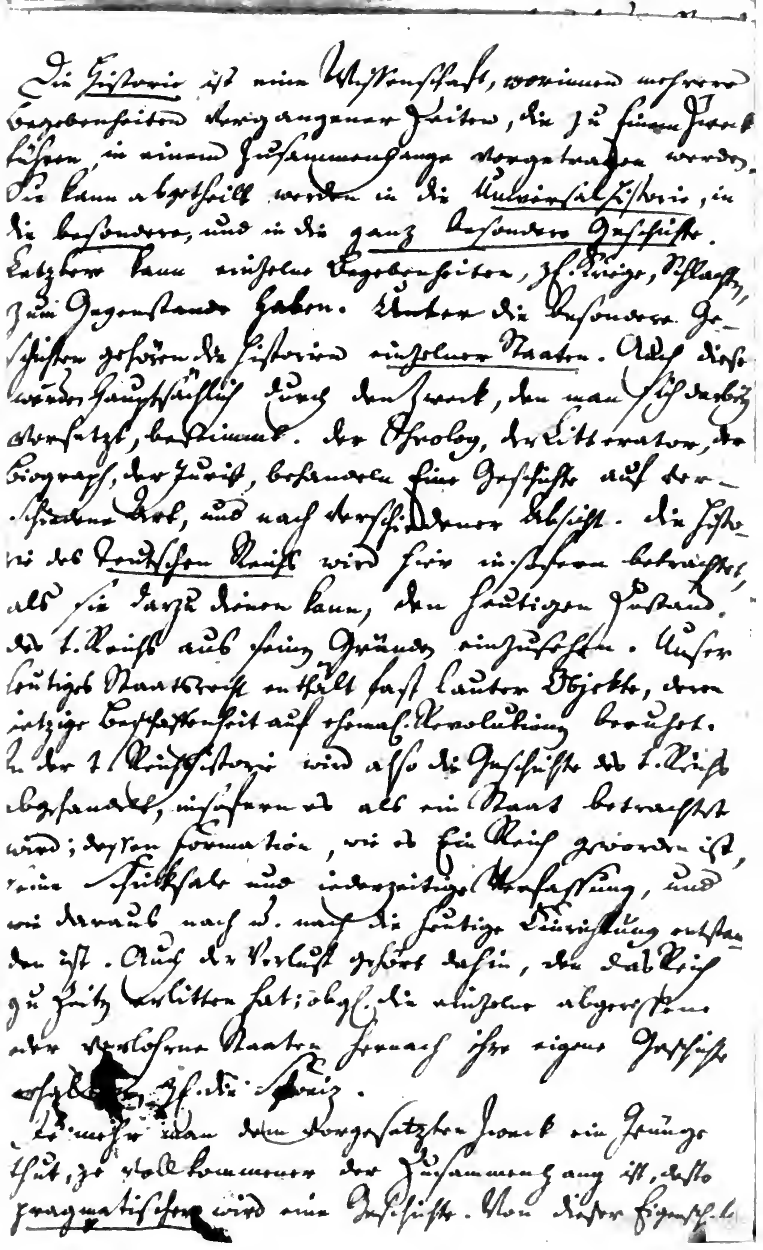 Die Historie ist eine Wissenschaft, worinnen mehrere
Begebenheiten vergangener Zeiten, die zu Einem Zweck
führen, in einem Zusammenhange vorgetragen werden.
Sie kann abgetheilt werden in die Universalhistorie, in
die besondere, und in die ganz besondere Geschichte.
Letztere kann einzelne Begebenheiten, zE. Kriege, Schlachten,
zum Gegenstande haben. Unter die besondere Ge-
schichten gehören die Historien einzelner Staaten. Auch diese
werden hauptsächlich durch den Zweck, den man sich darbey
vorsetzt, bestimmt. Der Theolog, der Litterator, der
Biograph, der Jurist, behandeln Eine Geschichte auf ver-
schiedene Art, und nach verschiedener Absicht. Die Histo-
rie des Teutschen Reichs wird hier insofern betrachtet,
als sie darzu dienen kann, den heutigen Zustand
des t. Reichs aus seinen Gründen einzusehen. Unser
heutiges Staatsrecht enthält fast lauter Objekte, deren
ietzige Beschaffenheit auf ehemal. Revolutionen beruhet.
In der t. Reichshistorie wird also die Geschichte des t. Reichs
abgehandelt, insofern es als ein Staat betrachtet
wird; dessen Formation, wie es Ein Reich geworden ist,
seine Schicksale und iederzeitige Verfassung, und
wie daraus nach u. nach die heutige Einrichtung entstan-
den ist. Auch der Verlust gehört dahin, den das Reich
zu Zeiten erlitten hat; obgl. die einzelne abgerissene
oder verlohrne Staaten hernach ihre eigene Geschichte
zE. die Schweiz.
Je mehr man dem vorgesetzten Zweck ein Genüge
thut, je vollkommener der Zusammenhang ist, desto
pragmatischer wird eine Geschichte. Von dieser Eigensch.